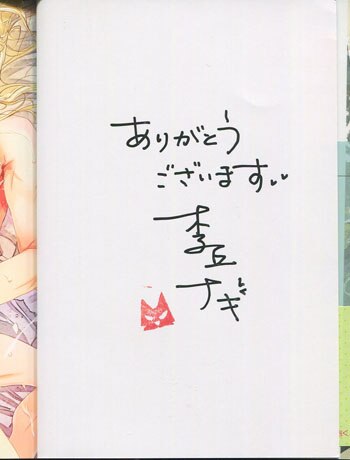 ありがとう
ございます
李
丘
ナギ